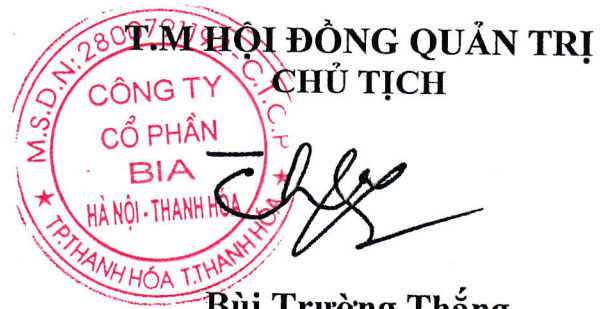 T.M HỘI ĐỒNG QUẢN TRỊ
CHỦ TỊCH
CÔNG TY
CỔ PHẦN
BIA
HÀ NỘI - THANH HÓA
TP.THANH HÓA T.THANH HÓA
Bùi Trường Thắng